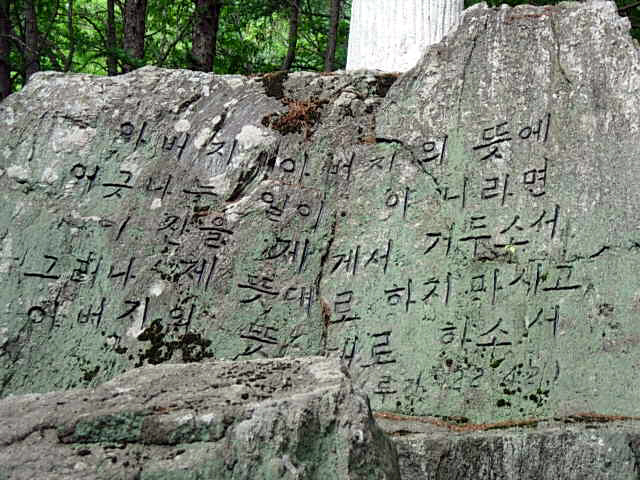 아버지 아버지의 뜻에
어긋나는 일이 아니라면
이 잔을 제게서 거두소서
그러나 제 뜻대로 하지 마시고
아버지의 뜻대로 하소서
루가 22